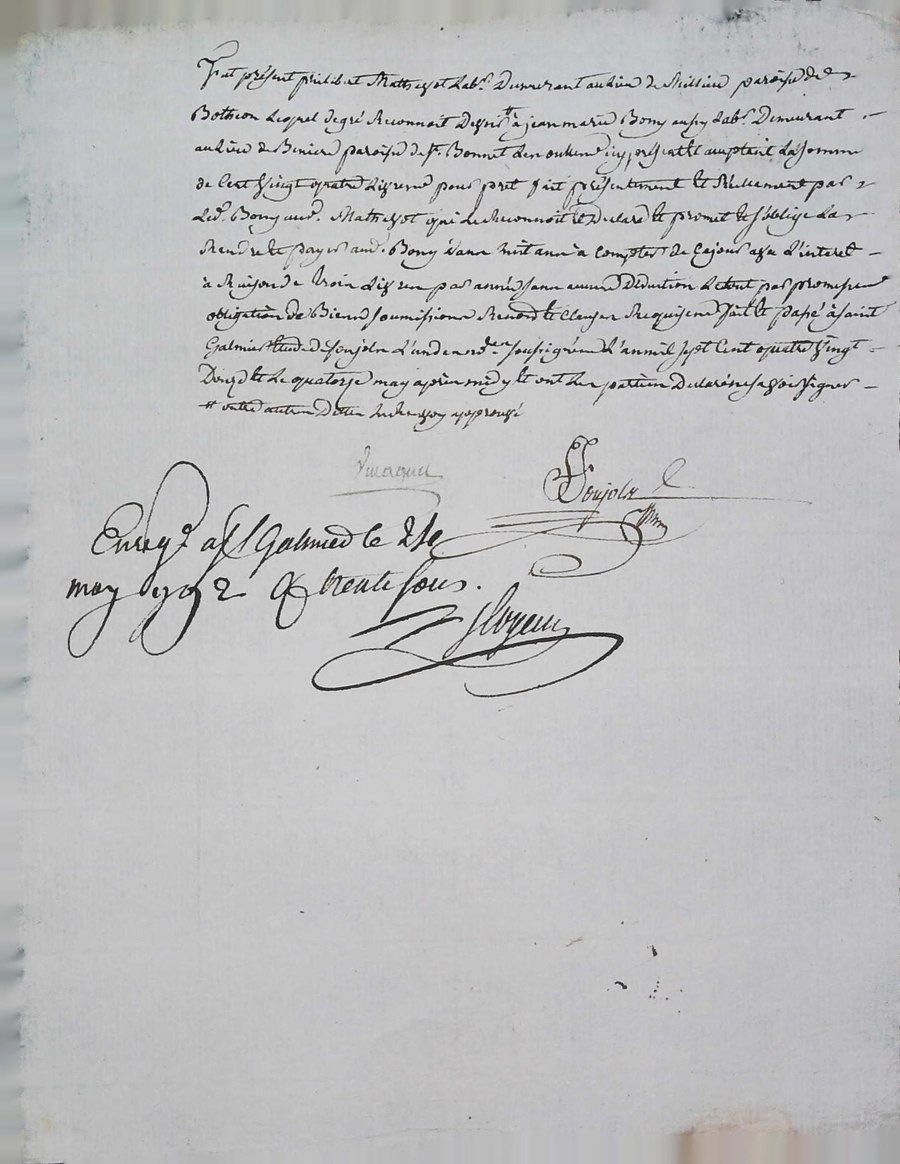 fut présent philibert Mathevot lab.r Demeurant au lieu de paroisse de
Bothéon lequel de gré Reconnoit Devoir # à jean marie Bony aussy lab.r Demeurant
au lieu de Beniere paroisse de S.t Bonnet Les oulles icy présent et acceptant la somme
de Cent vingt quatre Livres pour pret fait présentement et Réellement par
Led. Bony aud. Mathevot qui Le Reconnoit et Declare et promet et s'oblige La
Rendre et payer aud. Bony Dans huit ans à Compter de Cejour avec L'interet
à Raison de trois Livres par année sans aucune Déduction Le tout par promesse
obligation de Biens soumissions Renon et Clauses Requises fait et passé à saint
Galmier Etude de soujols L'un des no.res soussignés L'an mil sept Cent quatre vingt
Douze et Le quatorze may après midy et ont Les parties Declaré ne savoir signer
# outre autres Dettes approuvé
Soujols
Enreg.é a S.t Galmier le 21e
may 1792 R trente sous.